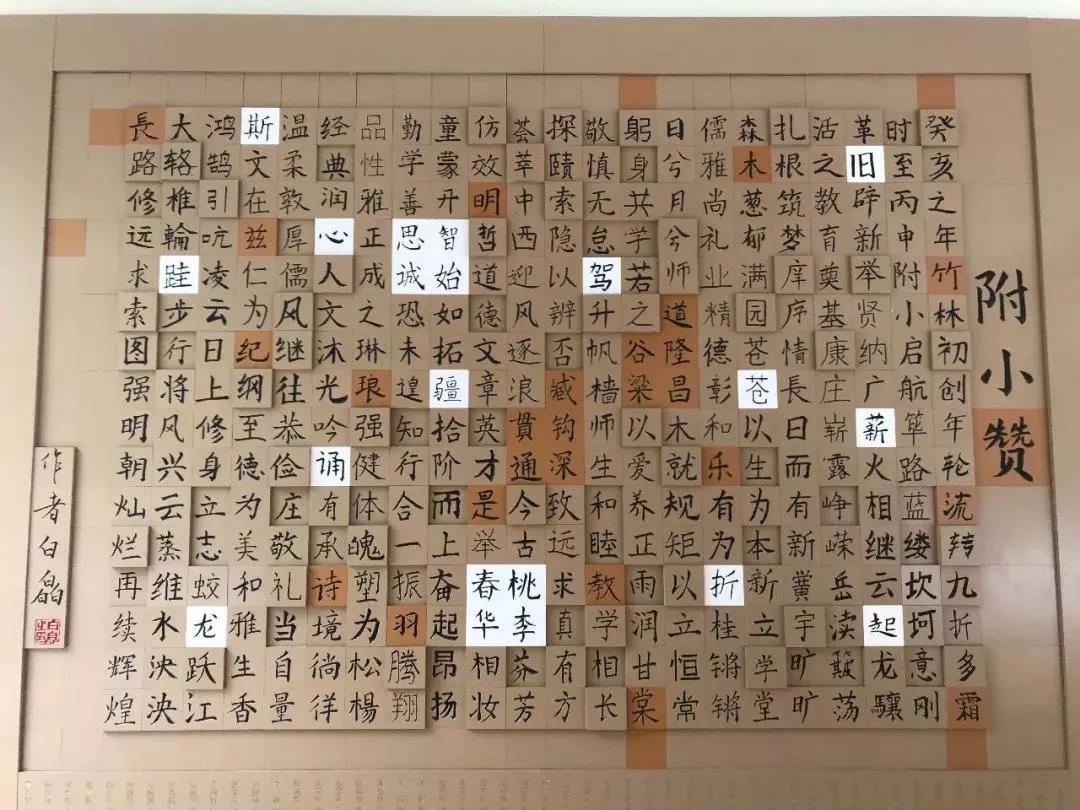 附小赞
癸亥之年竹林初创年轮流转九折多霜
时至丙申附小启航筚路蓝缕坎坷意刚
革旧辟新举贤纳广薪火相继云起龙驤
活之教育奠基康庄崭露峥嵘岳渎簸荡
扎根筑梦庠序情長日而有新黉宇旷旷
森木葱郁满园苍苍以生为本新立学堂
儒雅尚礼业精德彰和乐有为折桂锵锵
日兮月兮师道隆昌木就规矩以立恒常
躬身共学若之谷梁以爱养正雨润甘棠
敬慎无怠驾升帆樯师生和睦教学相长
探赜索隐以辨否臧钩深致远求真有方
荟萃中西迎风逐浪貫通今古桃李芬芳
仿效明哲道德文章英才是举春华相妆
童蒙开智始如拓疆拾阶而上奋起昂扬
勤学善思诚恐未遑知行合一振羽腾翔
品性雅正成之琳琅强健体魄塑为松楊
经典润心人文沐光吟诵有承诗境徜徉
温柔敦厚儒风继往恭俭庄敬礼当自量
斯文在兹仁为纪纲至德为美和雅生香
鸿鹄引吭凌云日上修身立志蛟龙跃江
大辂椎輪跬步行将风兴云蒸维水泱泱
長路修远求索图强明朝灿烂再续辉煌
作者白皛